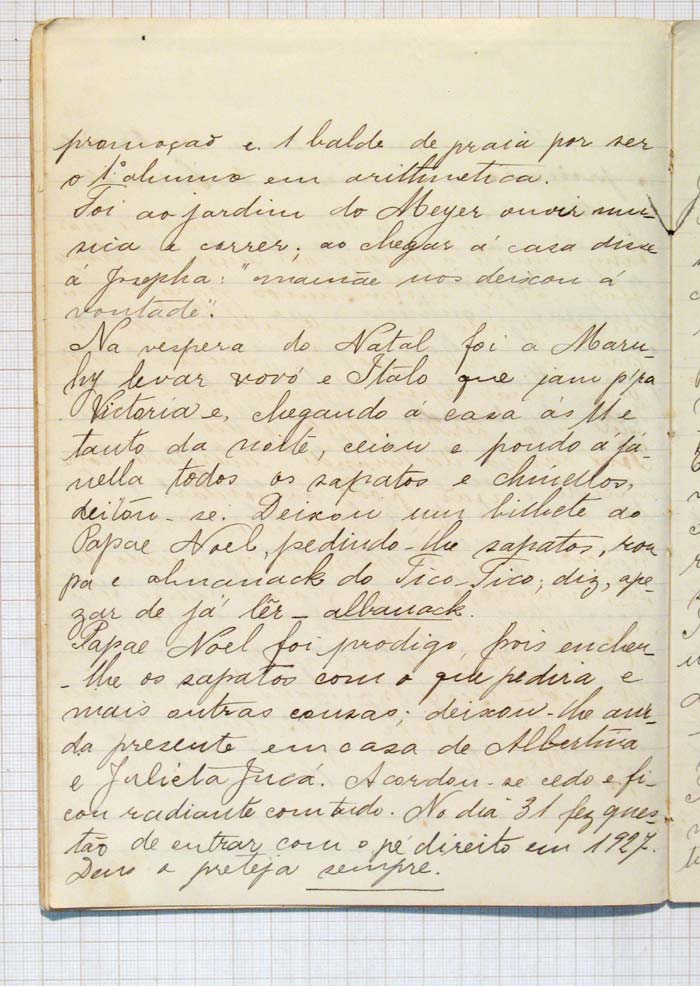 promoção e 1 balde de praia por ser
o 1º alumno em arithmetica.
Foi ao jardim do Meyer ouvir mu-
sica e correr; ao chegar á casa disse
á Josepha: "mamãe nos deixou á
vontade".
Na vespera do Natal foi a Maru-
hy levar vovó e Italo que iam p'ra
Victoria e, chegando á casa ás 11 e
tanto da noite, ceiou e pondo á ja-
nella todos os sapatos e chinellos,
deitou-se. Deixou um bilhete ao
Papae Noel, pedindo-lhe sapatos, rou
pa e almanack do Tico-Tico; diz, ape-
zar de já lêr - albanack.
Papae Noel foi prodigo, pois encheu-
-lhe os sapatos com o que pedira e
mais outras cousas; deixou-lhe ain-
da presente em casa de Albertina
e Julieta Jucá. Acordou-se cedo e fi-
cou radiante com tudo. No dia 31 fez ques-
tão de entrar com o pé direito em 1927.
Deus o proteja sempre.